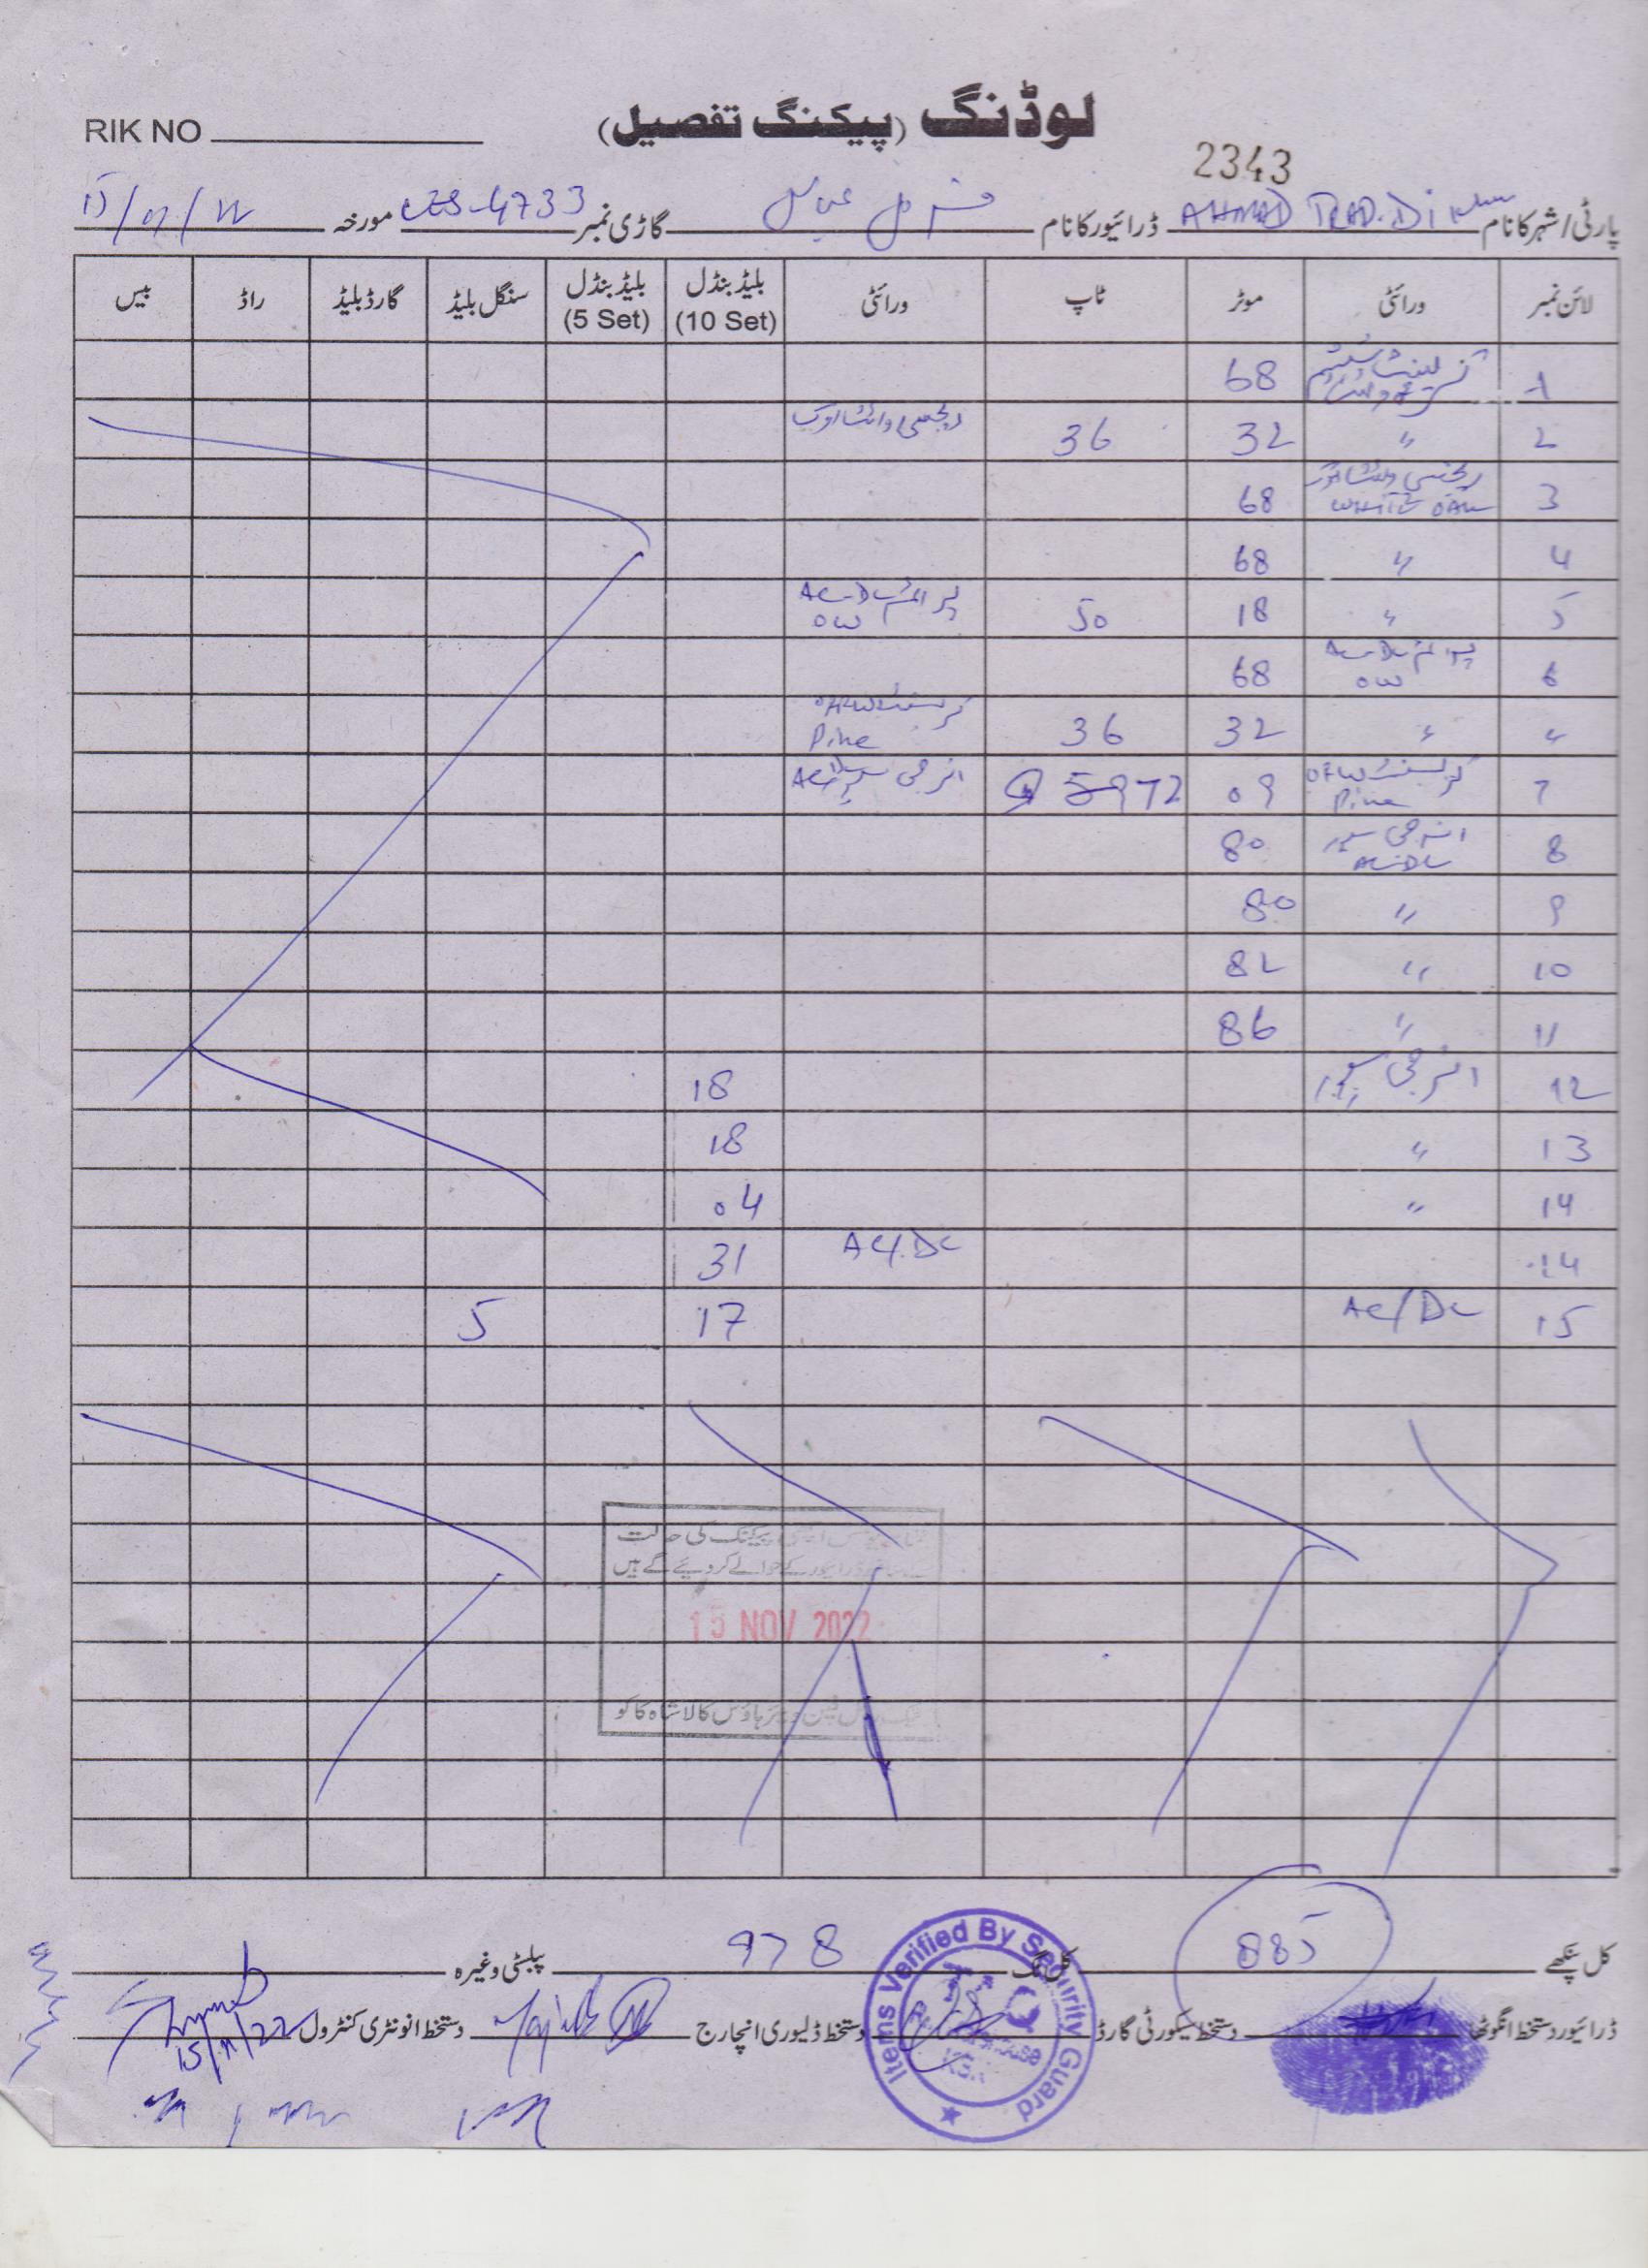 لوڈنگ (پیکنگ تفصیل)
RIK NO
2343
پارٹی/شہر کا نام AHMAD TRAD. ڈرائیور کا نام گاڑی نمبر 4733 مورخہ 15/11/22
لائن نمبر ورائٹی موٹر ٹاپ ورائٹی بلیڈ بنڈل (10 Set) بلیڈ بنڈل (5 Set) سنگل بلیڈ گارڈ بلیڈ راڈ بیس
1 68
2 〃 32 36 ریجنسی وائٹ اوک
3 ریجنسی وائٹ اوک WHITE OAK 68
4 〃 68
5 〃 18 50 پرائم AC-DC OW
6 پرائم AC-DC OW 68
〃 〃 32 36 کریسنٹ Pine
7 کریسنٹ Pine 09 72 انرجی سیور AC/DC
8 انرجی سیور AC-DC 80
9 〃 80
10 〃 82
11 〃 86
12 انرجی سیور 18
13 〃 18
14 〃 04
14 AC/DC 31
15 AC/DC 17 5
پیکنگ کی حالت
ڈرائیور کے حوالے کر دیئے گئے ہیں
15 NOV 2022
فین ویئر ہاؤس کالا شاہ کاکو
کل پنکھے 885 کل نگ 978 پبلسٹی وغیرہ
ڈرائیور دستخط انگوٹھا دستخط سیکورٹی گارڈ دستخط ڈلیوری انچارج دستخط انونٹری کنٹرول
15/11/22
Items Verified By Security Guard